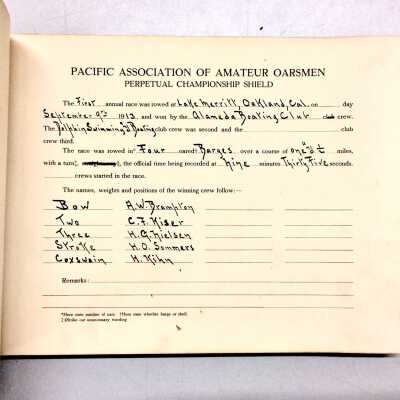 PACIFIC ASSOCIATION OF AMATEUR OARSMEN
PERPETUAL CHAMPIONSHIP SHIELD
The First annual race was rowed at Lake Merritt, Oakland, Cal. on day
September 9th 1913, and won by the Alameda Boating Club club crew.
The Dolphin Swimming & Boating club crew was second and the club
crew third.
The race was rowed in *Four oared† Barges over a course of one & ½ miles,
with a turn‡, the official time being recorded at Nine minutes Thirty Five seconds.
crews started in the race.
The names, weights and positions of the winning crew follow:—
Bow A.W. Brampton
Two C.F. Kiser
Three H.G. Nielsen
Stroke H.O. Sommers
Coxswain H. Kihn
Remarks:
*Here state number of oars. †Here state whether barge or shell.
‡Strike out unnecessary wording